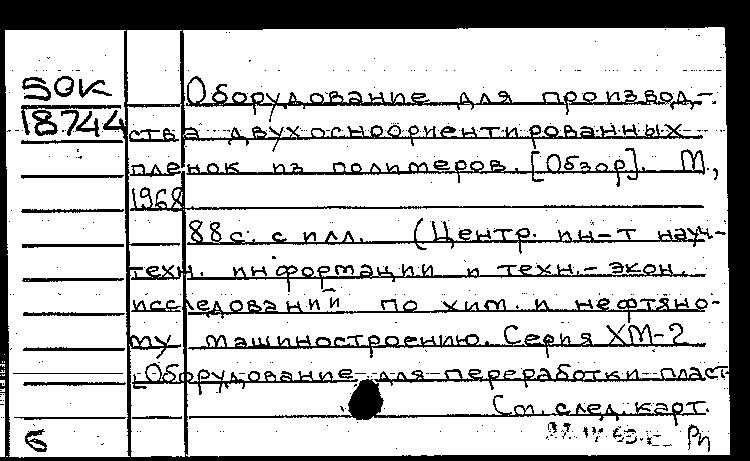 ЗОК
18744
Оборудование для производ-
ства двухосноориентированных
пленок из полимеров. [Обзор]. М.,
1968
88 с. с илл. (Центр. ин-т науч-
техн. информации и техн.- экон.
исследований по хим. и нефтяно-
му машиностроению. Серия ХМ-2
[Оборудование для переработки пласт
См. след. карт.
б